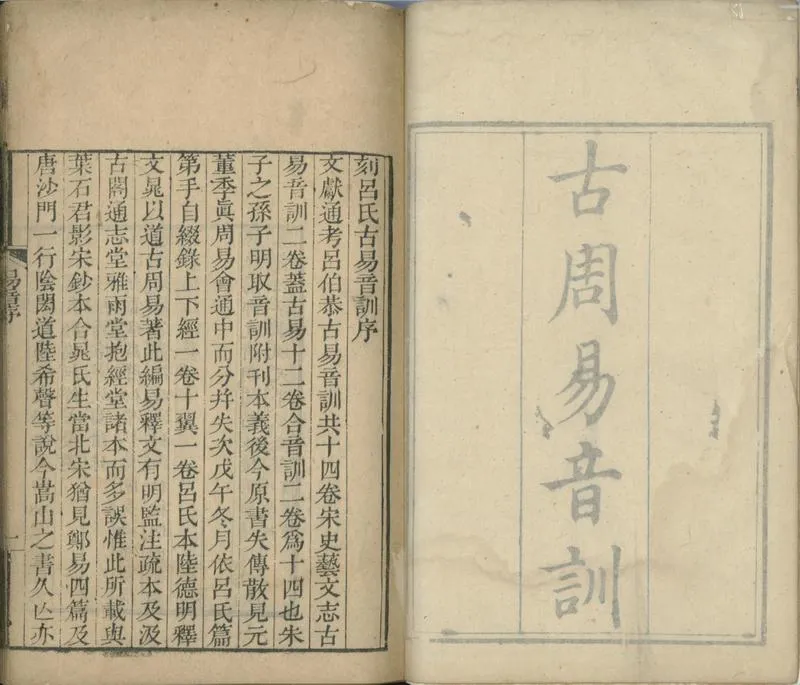 古周易音訓
刻呂氏古易音訓序
文獻通考呂伯恭古易音訓共十四卷宋史藝文志古
易音訓二卷蓋古易十二卷合音訓二卷爲十四也朱
子之孫子明取音訓附刊本義後今原書失傳散見元
董季眞周易會通中而分幷失次戊午冬月依呂氏篇
第手自綴錄上下經一卷十翼一卷呂氏本陸德明釋
文晁以道古周易著此編易釋文有明監注疏本及汲
古閣通志堂雅雨堂抱經堂諸本而多誤惟此所載與
葉石君影宋鈔本合晁氏生當北宋猶見鄭易四篇及
唐沙門一行陰閎道陸希聲等說今嵩山之書久亾亦
易音序
一